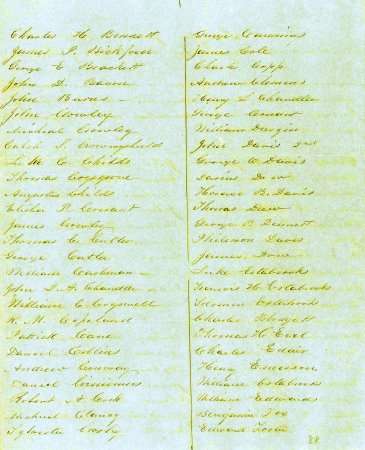 Charles H. Bennett
James P. Bickford
George E. Brackett
John D. Bacon
John Burns
John Crowley
Michael Crowley
Caleb S. Crowninshield
C. Childs
Thomas Cosgrove
Augustus Childs
Elisha P. Conant
James Conly
Thomas C. Cutler
George Cutler
William Cashman
John L. A. Chandler
William C. Cogswell
R. M. Copeland
Patrick Cane
Daniel Collins
Andrew Conway
Daniel Cummings
Robert A. Cook
Michael Clancy
Sylvester Crosby
George Cummins
James Cole
Charles Copp
Andrew Clemens
Henry L. Chandler
George Conant
William Dungin
John Davis 2nd
George W. Davis
Darius Dow
Horace B. Davis
Thomas Dow
George B. Dennett
Philemon Davis
James Dow
Luke Estabrooks
Francis H. Estabrooks
Solomon Estabrook
Charles Blodgett
Thomas H. Earl
Charles Adair
Henry Emerson
William Estabrooks
William Edwards
Benjamin Fox
Edward Foren
88